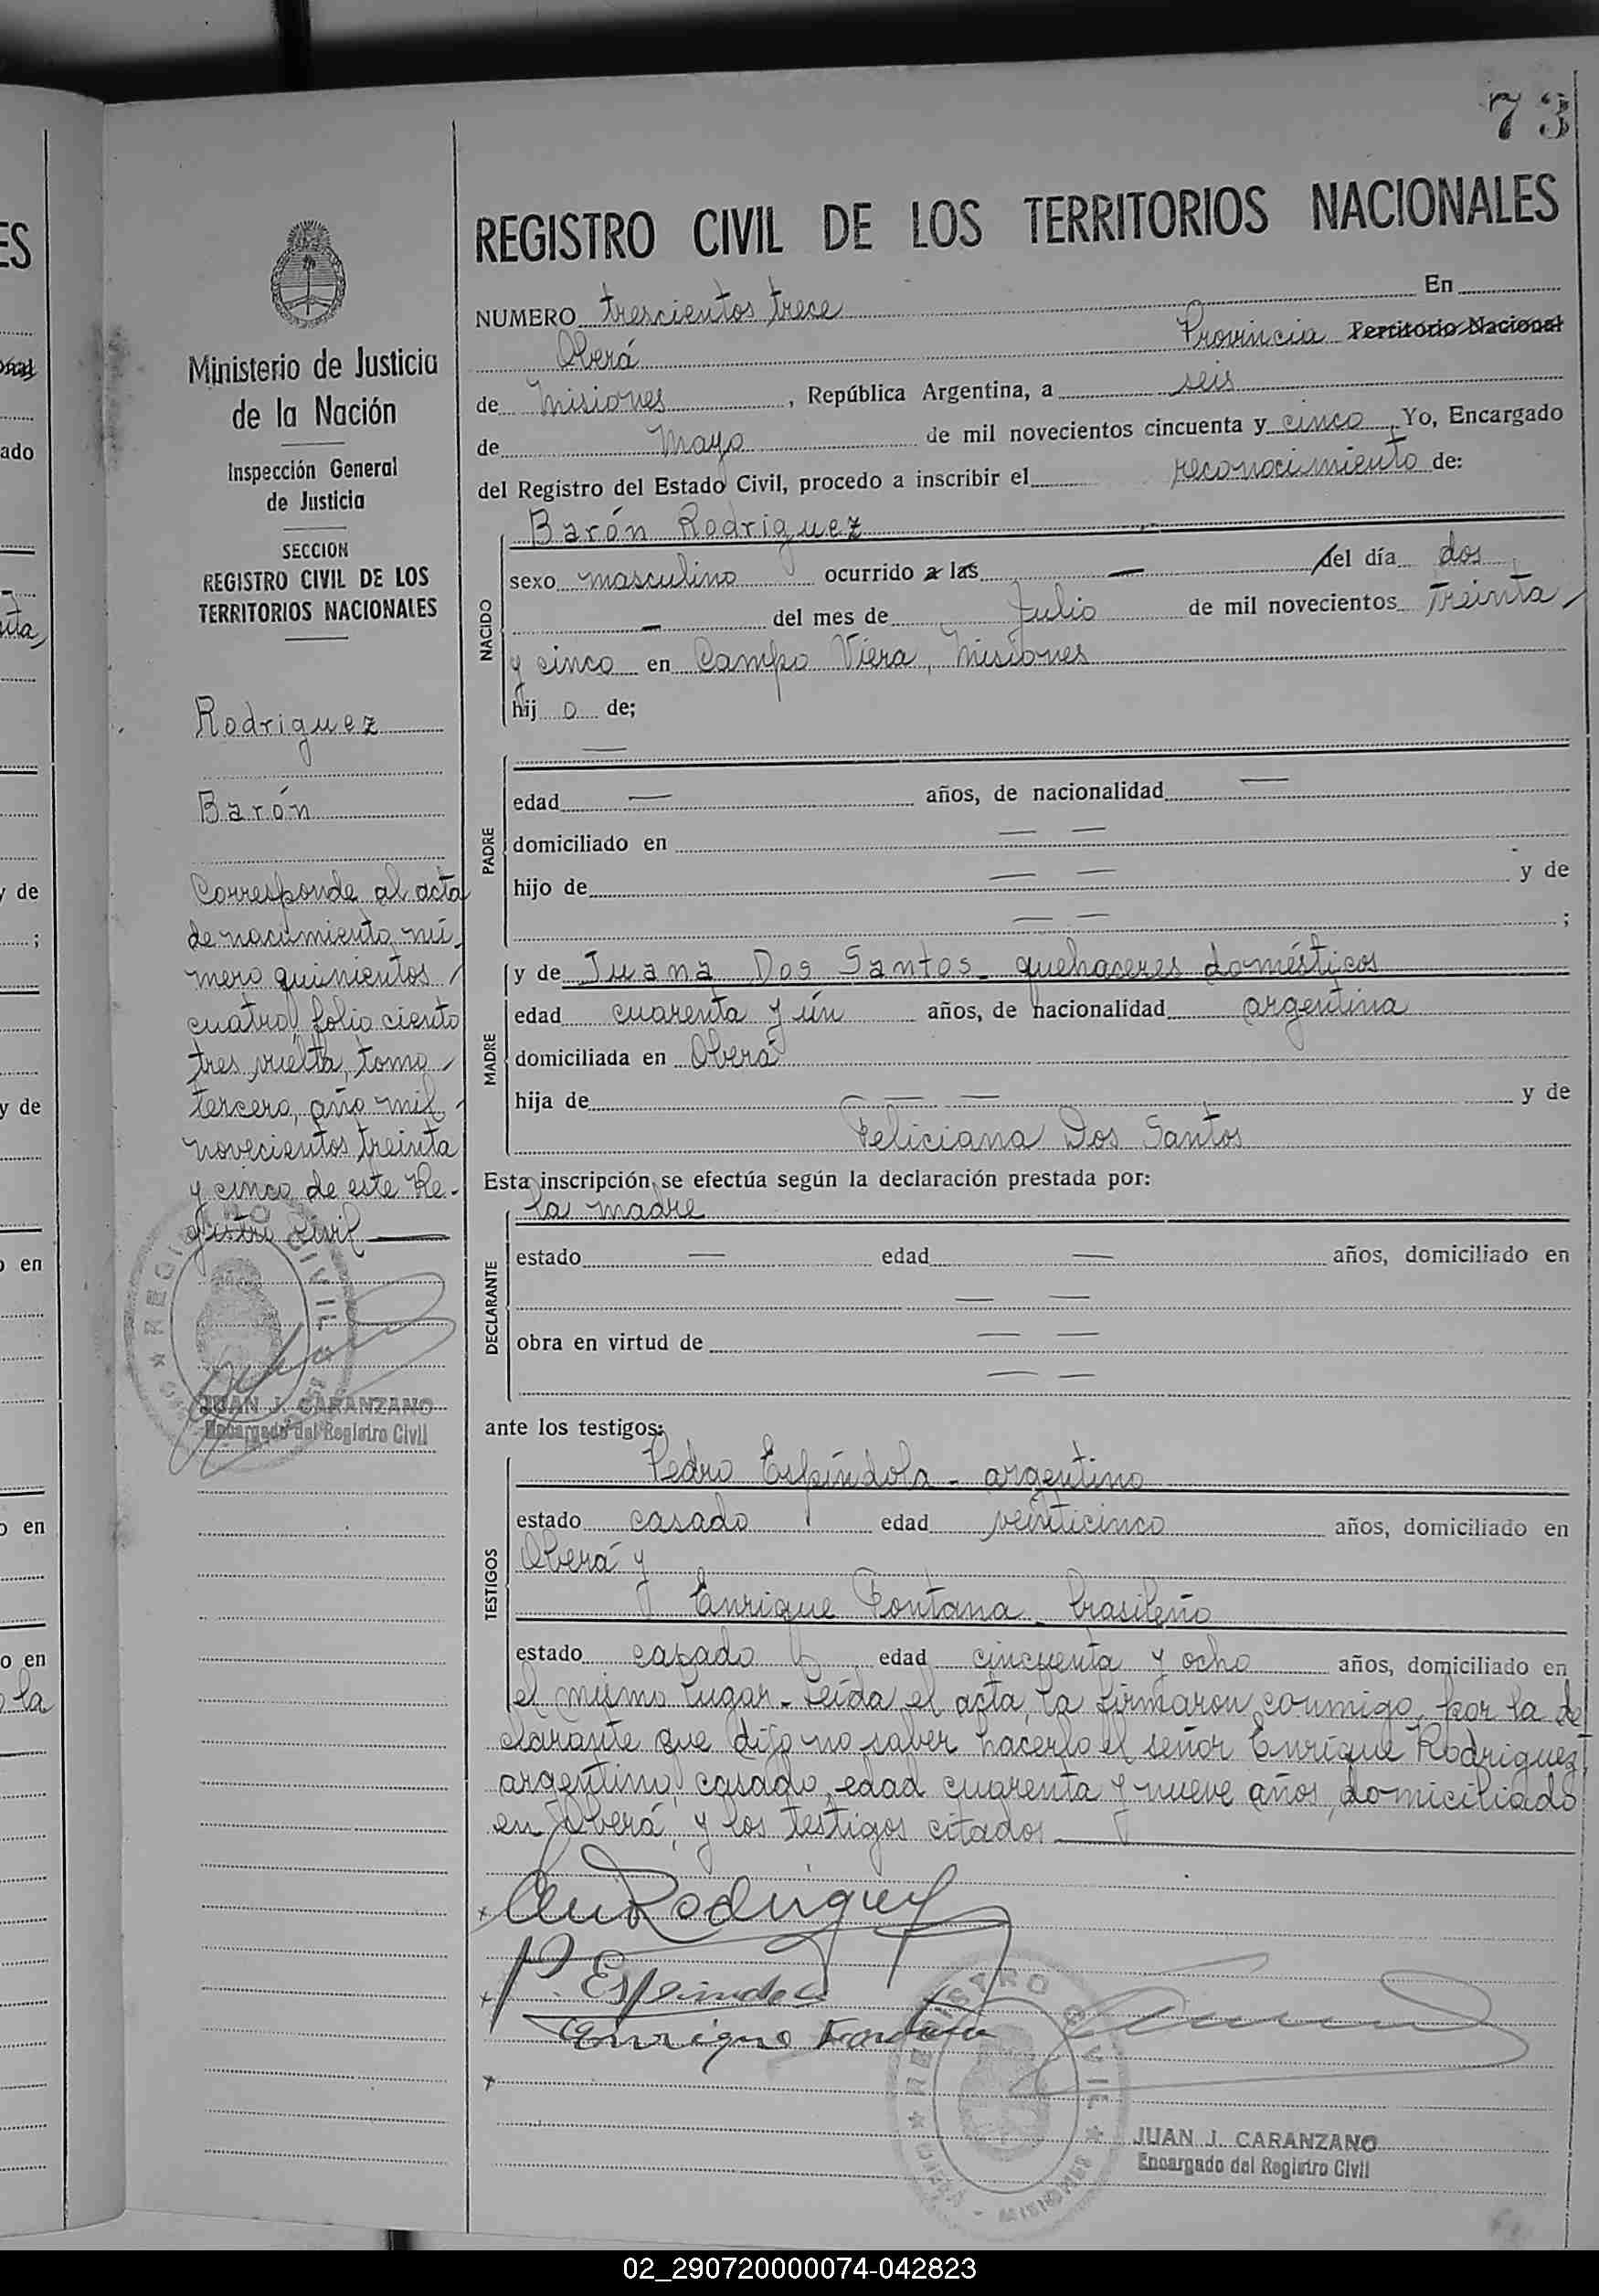 73
REGISTRO CIVIL DE LOS TERRITORIOS NACIONALES
NUMERO trescientos trece En
Oberá Provincia Territorio Nacional
de Misiones, República Argentina, a seis
de Mayo de mil novecientos cincuenta y cinco, Yo, Encargado
del Registro del Estado Civil, procedo a inscribir el reconocimiento de:
NACIDO
Barón Rodriguez
sexo masculino ocurrido a las — del día dos
— del mes de Julio de mil novecientos treinta
y cinco en Campo Viera, Misiones
hijo de;
PADRE
—
edad — años, de nacionalidad —
domiciliado en — —
hijo de — — y de
— — ;
MADRE
y de Juana Dos Santos - quehaceres domésticos
edad cuarenta y ún años, de nacionalidad argentina
domiciliada en Oberá
hija de — — — y de
Feliciana Dos Santos
Esta inscripción se efectúa según la declaración prestada por:
DECLARANTE
la madre
estado — edad — años, domiciliado en
— —
obra en virtud de — —
— —
ante los testigos:
TESTIGOS
Pedro Espíndola - argentino
estado casado edad veinticinco años, domiciliado en
Oberá y
Enrique Fontana - brasileño
estado casado edad cincuenta y ocho años, domiciliado en
el mismo lugar - Leída el acta, la firmaron conmigo, por la de
clarante que dijo no saber hacerlo el señor Enrique Rodriguez,
argentino, casado, edad cuarenta y nueve años, domiciliado
en Oberá, y los testigos citados
Rodriguez
P. Espindola
Enrique Fontana
REGISTRO CIVIL
MISIONES
JUAN J. CARANZANO
Encargado del Registro Civil
Ministerio de Justicia
de la Nación
Inspección General
de Justicia
SECCION
REGISTRO CIVIL DE LOS
TERRITORIOS NACIONALES
Rodriguez
Barón
Corresponde al acta
de nacimiento nú-
mero quinientos
cuatro, folio ciento
tres vuelta, tomo
tercero, año mil
novecientos treinta
y cinco de este Re-
gistro Civil
REGISTRO CIVIL
JUAN J. CARANZANO
Encargado del Registro Civil
ES
ado
y de
;
y de
o en
o en
o en
la
02_290720000074-042823